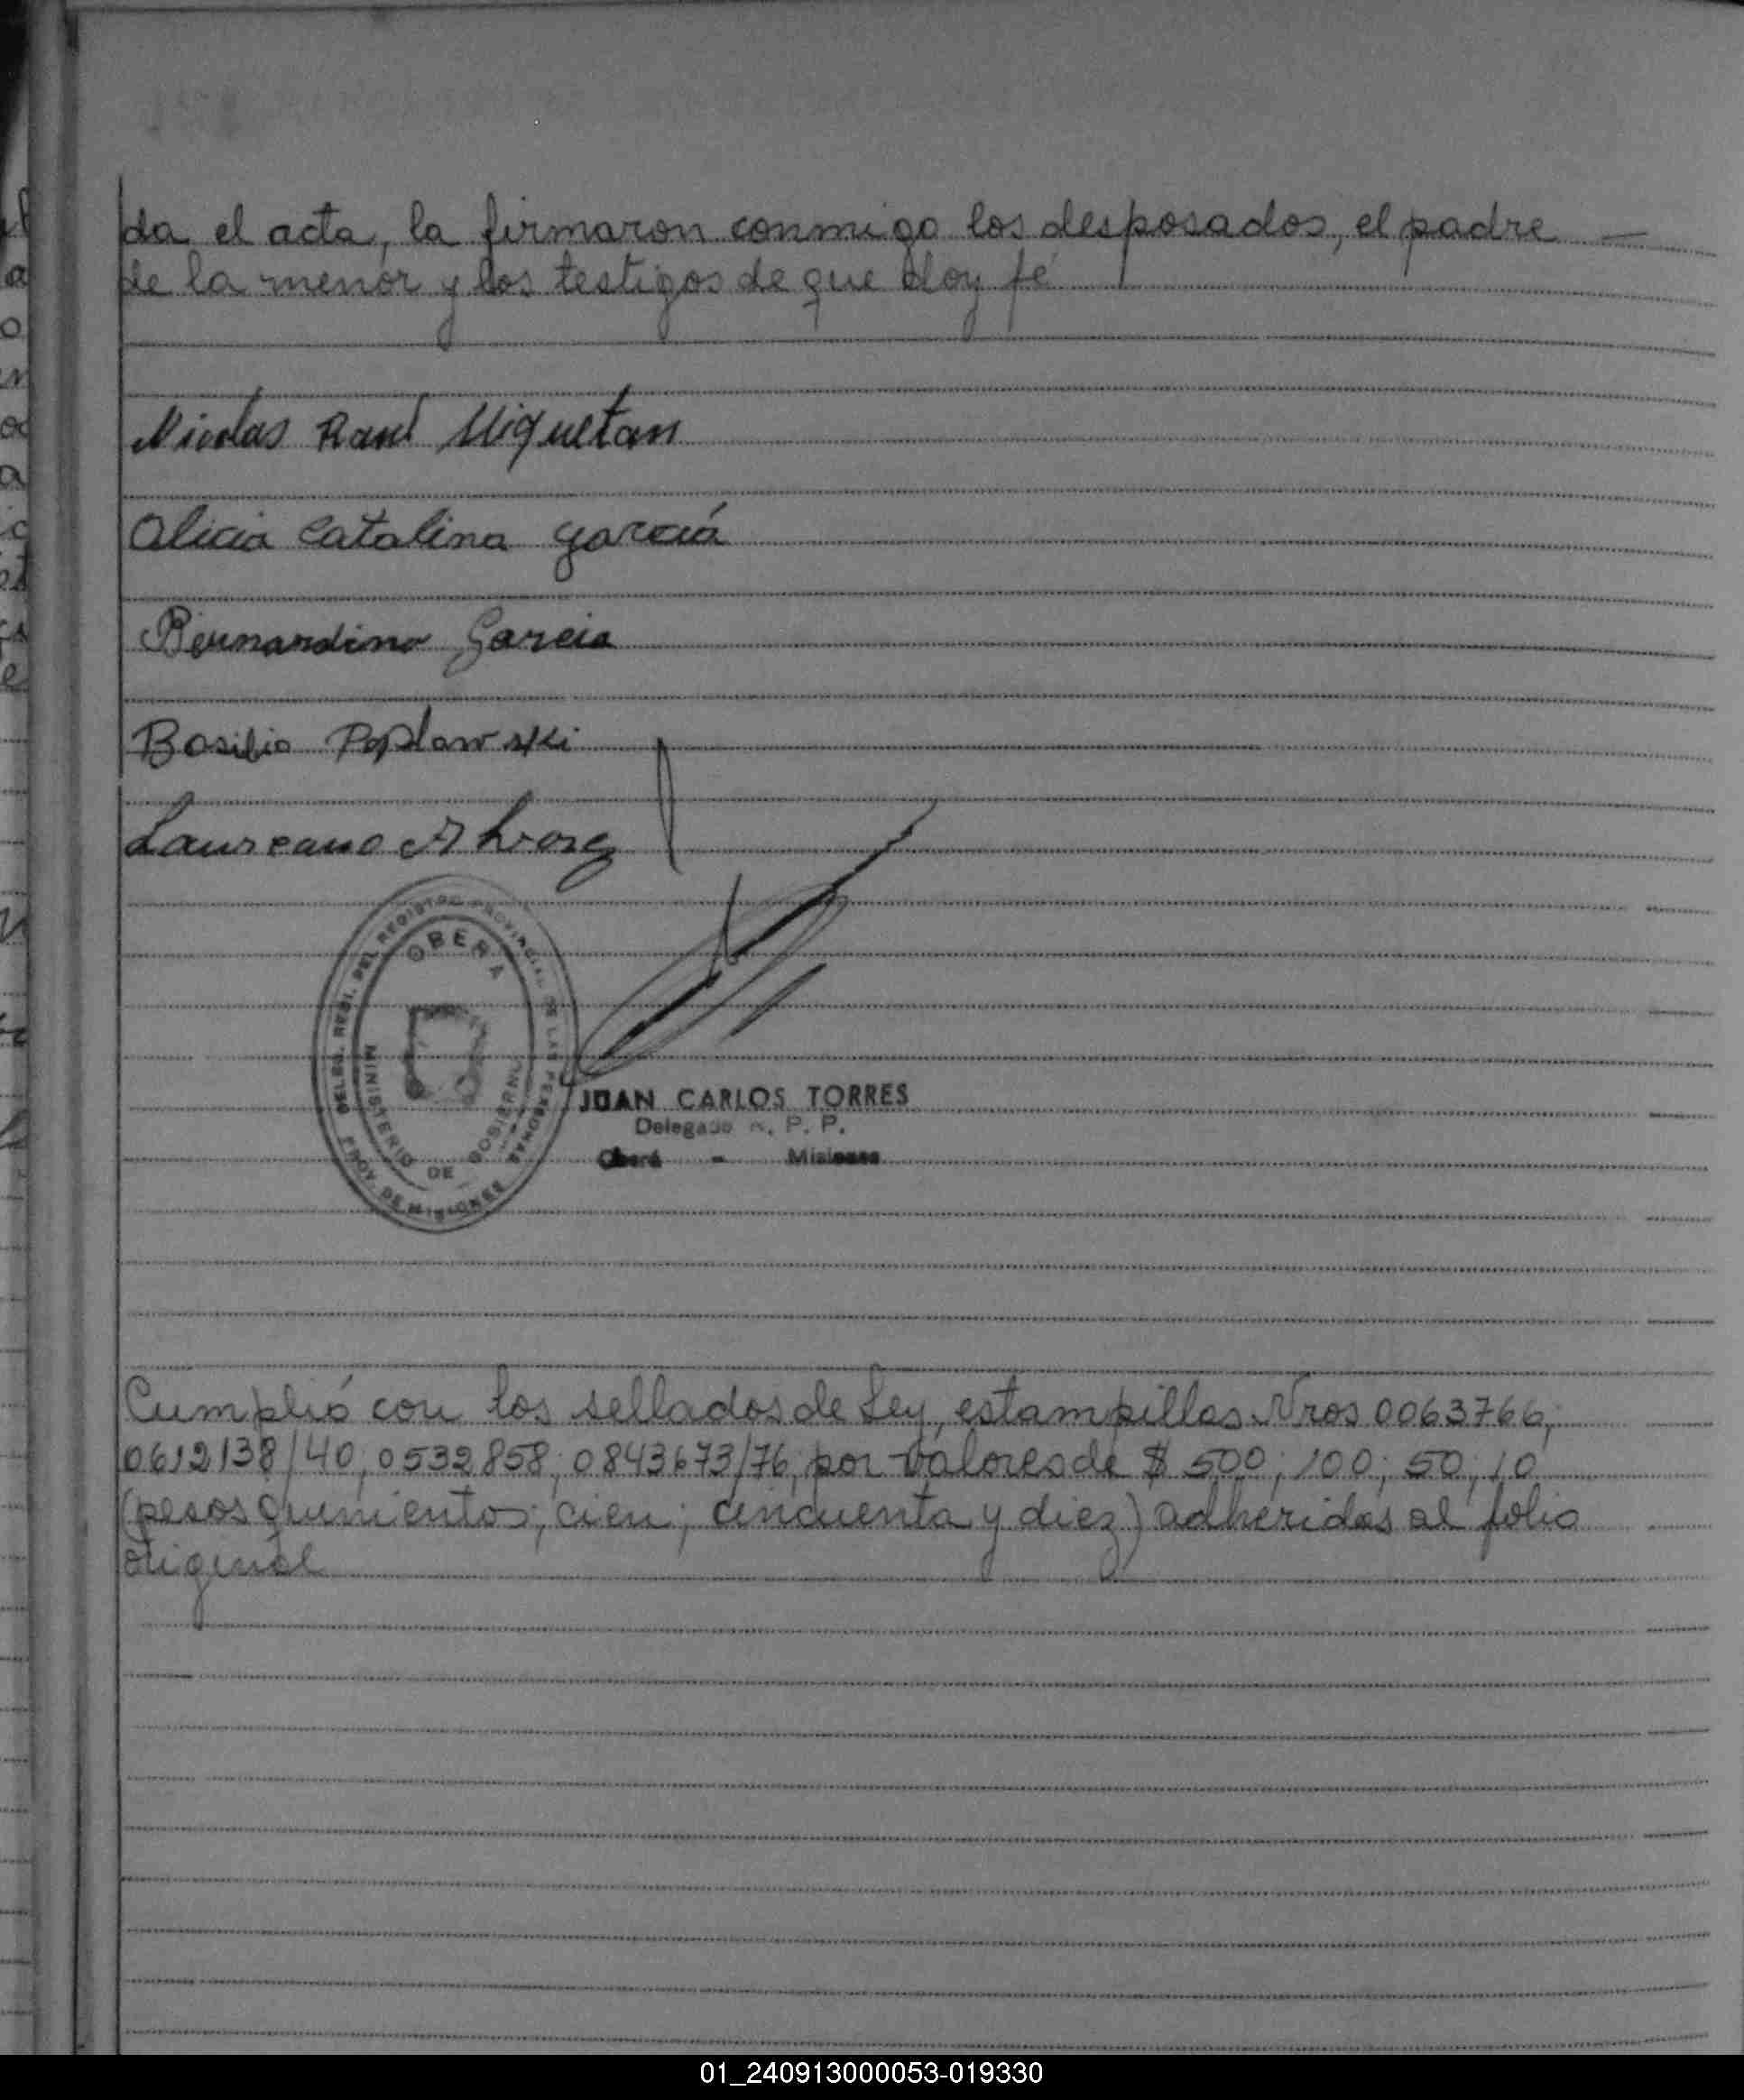 da el acta, la firmaron conmigo los desposados, el padre —
de la menor y los testigos de que doy fé
Nicolas Raul Miquetan
Alicia Catalina Garciá
Bernardino Garcia
Basilio Poplawski
Laureano
DELEG. REGI. DEL REGISTRO PROVINCIAL DE LAS PERSONAS
OBERA
MINISTERIO DE GOBIERNO
PROV. DE MISIONES
JUAN CARLOS TORRES
Delegado R. P. P.
Oberá - Misiones
Cumplió con los sellados de Ley, estampillas Nros 0063766;
0612138/40; 0532858; 0843673/76; por valores de $ 500; 100; 50; 10
(pesos quinientos; cien; cincuenta y diez) adheridas al folio
original
01_240913000053-019330